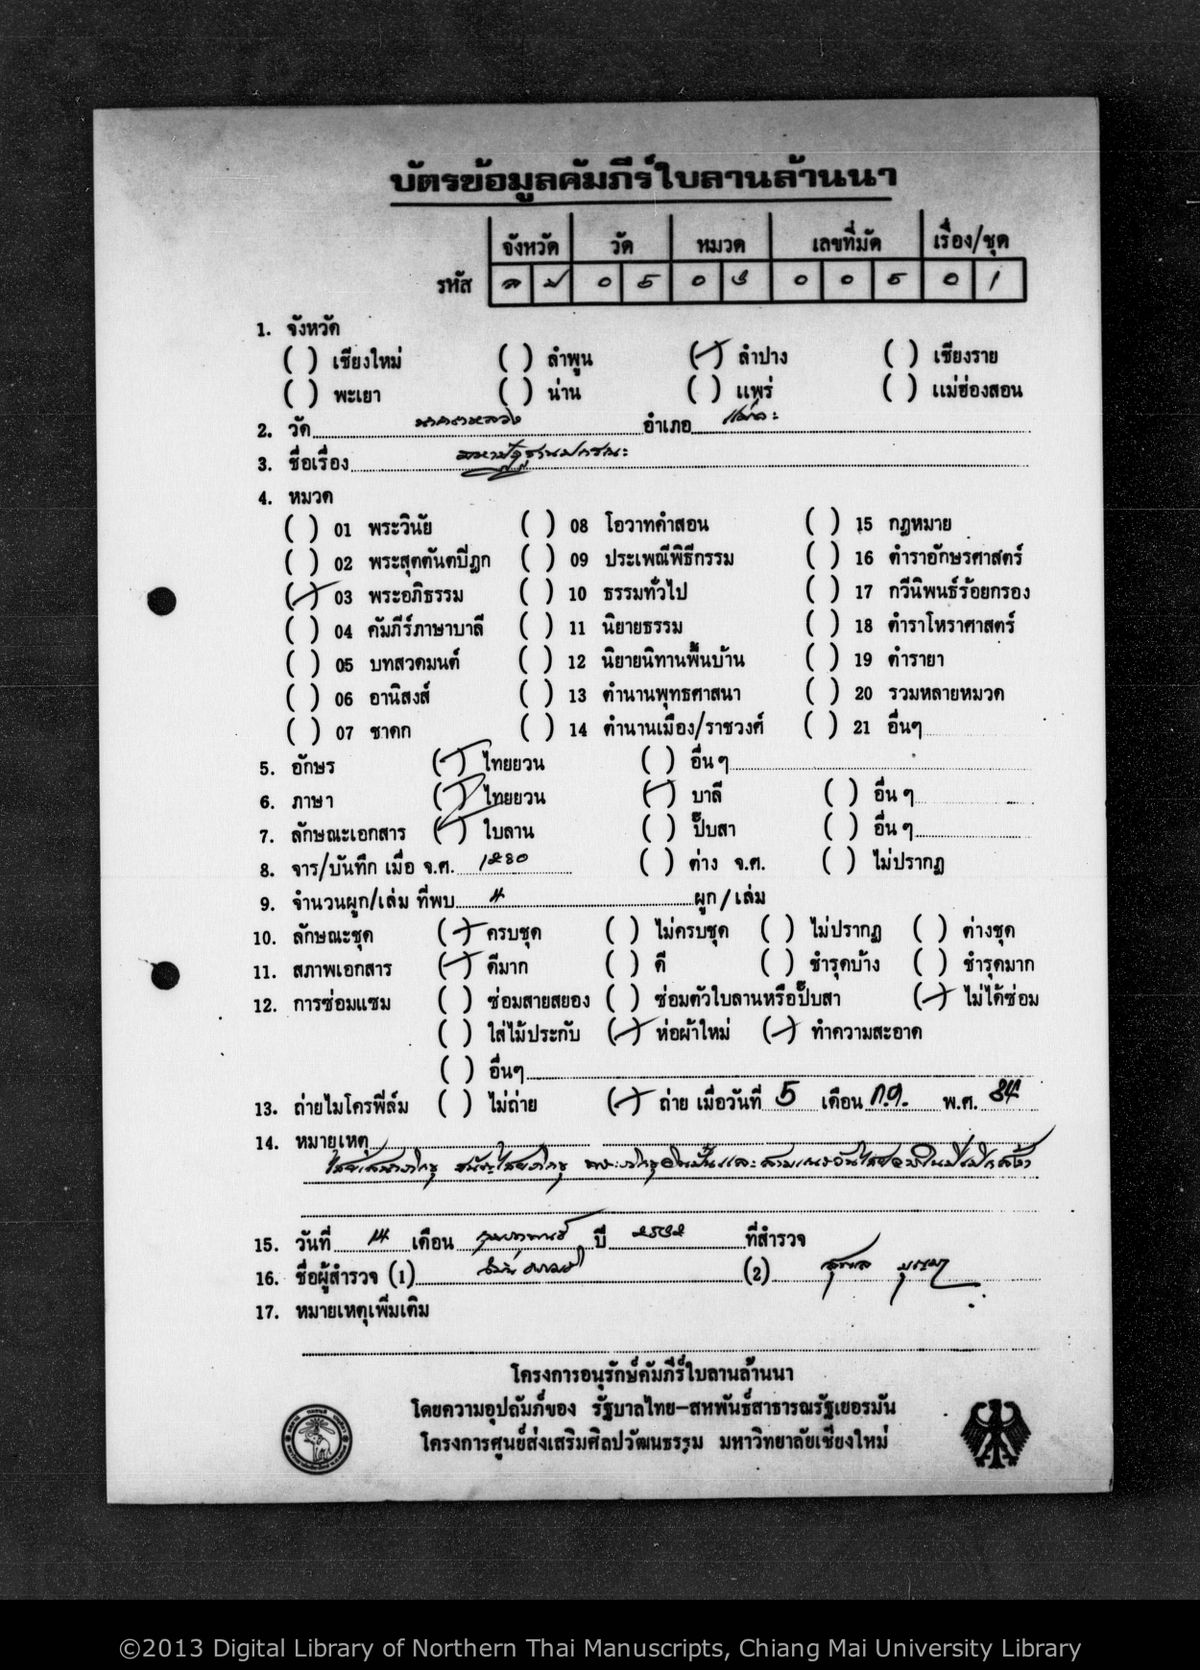 บัตรข้อมูลคัมภีร์ใบลานล้านนา
จังหวัด วัด หมวด เลขที่มัด เรื่อง/ชุด
รหัส ล ป 0 5 0 3 0 0 5 0 1
1. จังหวัด
( ) เชียงใหม่ ( ) ลำพูน (/) ลำปาง ( ) เชียงราย
( ) พะเยา ( ) น่าน ( ) แพร่ ( ) แม่ฮ่องสอน
2. วัด นาคตหลวง อำเภอ แม่ทะ
3. ชื่อเรื่อง มหาปัฏฐานปกรณะ
4. หมวด
( ) 01 พระวินัย ( ) 08 โอวาทคำสอน ( ) 15 กฎหมาย
( ) 02 พระสุตตันตปิฎก ( ) 09 ประเพณีพิธีกรรม ( ) 16 ตำราอักษรศาสตร์
(/) 03 พระอภิธรรม ( ) 10 ธรรมทั่วไป ( ) 17 กวีนิพนธ์ร้อยกรอง
( ) 04 คัมภีร์ภาษาบาลี ( ) 11 นิยายธรรม ( ) 18 ตำราโหราศาสตร์
( ) 05 บทสวดมนต์ ( ) 12 นิยายนิทานพื้นบ้าน ( ) 19 ตำรายา
( ) 06 อานิสงส์ ( ) 13 ตำนานพุทธศาสนา ( ) 20 รวมหลายหมวด
( ) 07 ชาดก ( ) 14 ตำนานเมือง/ราชวงศ์ ( ) 21 อื่นๆ
5. อักษร (/) ไทยยวน ( ) อื่น ๆ
6. ภาษา (/) ไทยยวน (/) บาลี ( ) อื่น ๆ
7. ลักษณะเอกสาร (/) ใบลาน ( ) ปั๊บสา ( ) อื่น ๆ
8. จาร/บันทึก เมื่อ จ.ศ. ( ) ต่าง จ.ศ. ( ) ไม่ปรากฏ
9. จำนวนผูก/เล่ม ที่พบ ผูก/เล่ม
10. ลักษณะชุด (/) ครบชุด ( ) ไม่ครบชุด ( ) ไม่ปรากฏ ( ) ต่างชุด
11. สภาพเอกสาร (/) ดีมาก ( ) ดี ( ) ชำรุดบ้าง ( ) ชำรุดมาก
12. การซ่อมแซม ( ) ซ่อมสายสยอง ( ) ซ่อมตัวใบลานหรือปั๊บสา (/) ไม่ได้ซ่อม
( ) ใส่ไม้ประกับ (/) ห่อผ้าใหม่ (/) ทำความสะอาด
( ) อื่นๆ
13. ถ่ายไมโครฟิล์ม ( ) ไม่ถ่าย (/) ถ่าย เมื่อวันที่ 5 เดือน ก.ค. พ.ศ. 34
14. หมายเหตุ
15. วันที่ 14 เดือน กุมภาพันธ์ ปี 2532 ที่สำรวจ
16. ชื่อผู้สำรวจ (1) (2)
17. หมายเหตุเพิ่มเติม
โครงการอนุรักษ์คัมภีร์ใบลานล้านนา
โดยความอุปถัมภ์ของ รัฐบาลไทย–สหพันธ์สาธารณรัฐเยอรมัน
โครงการศูนย์ส่งเสริมศิลปวัฒนธรรม มหาวิทยาลัยเชียงใหม่
©2013 Digital Library of Northern Thai Manuscripts, Chiang Mai University Library